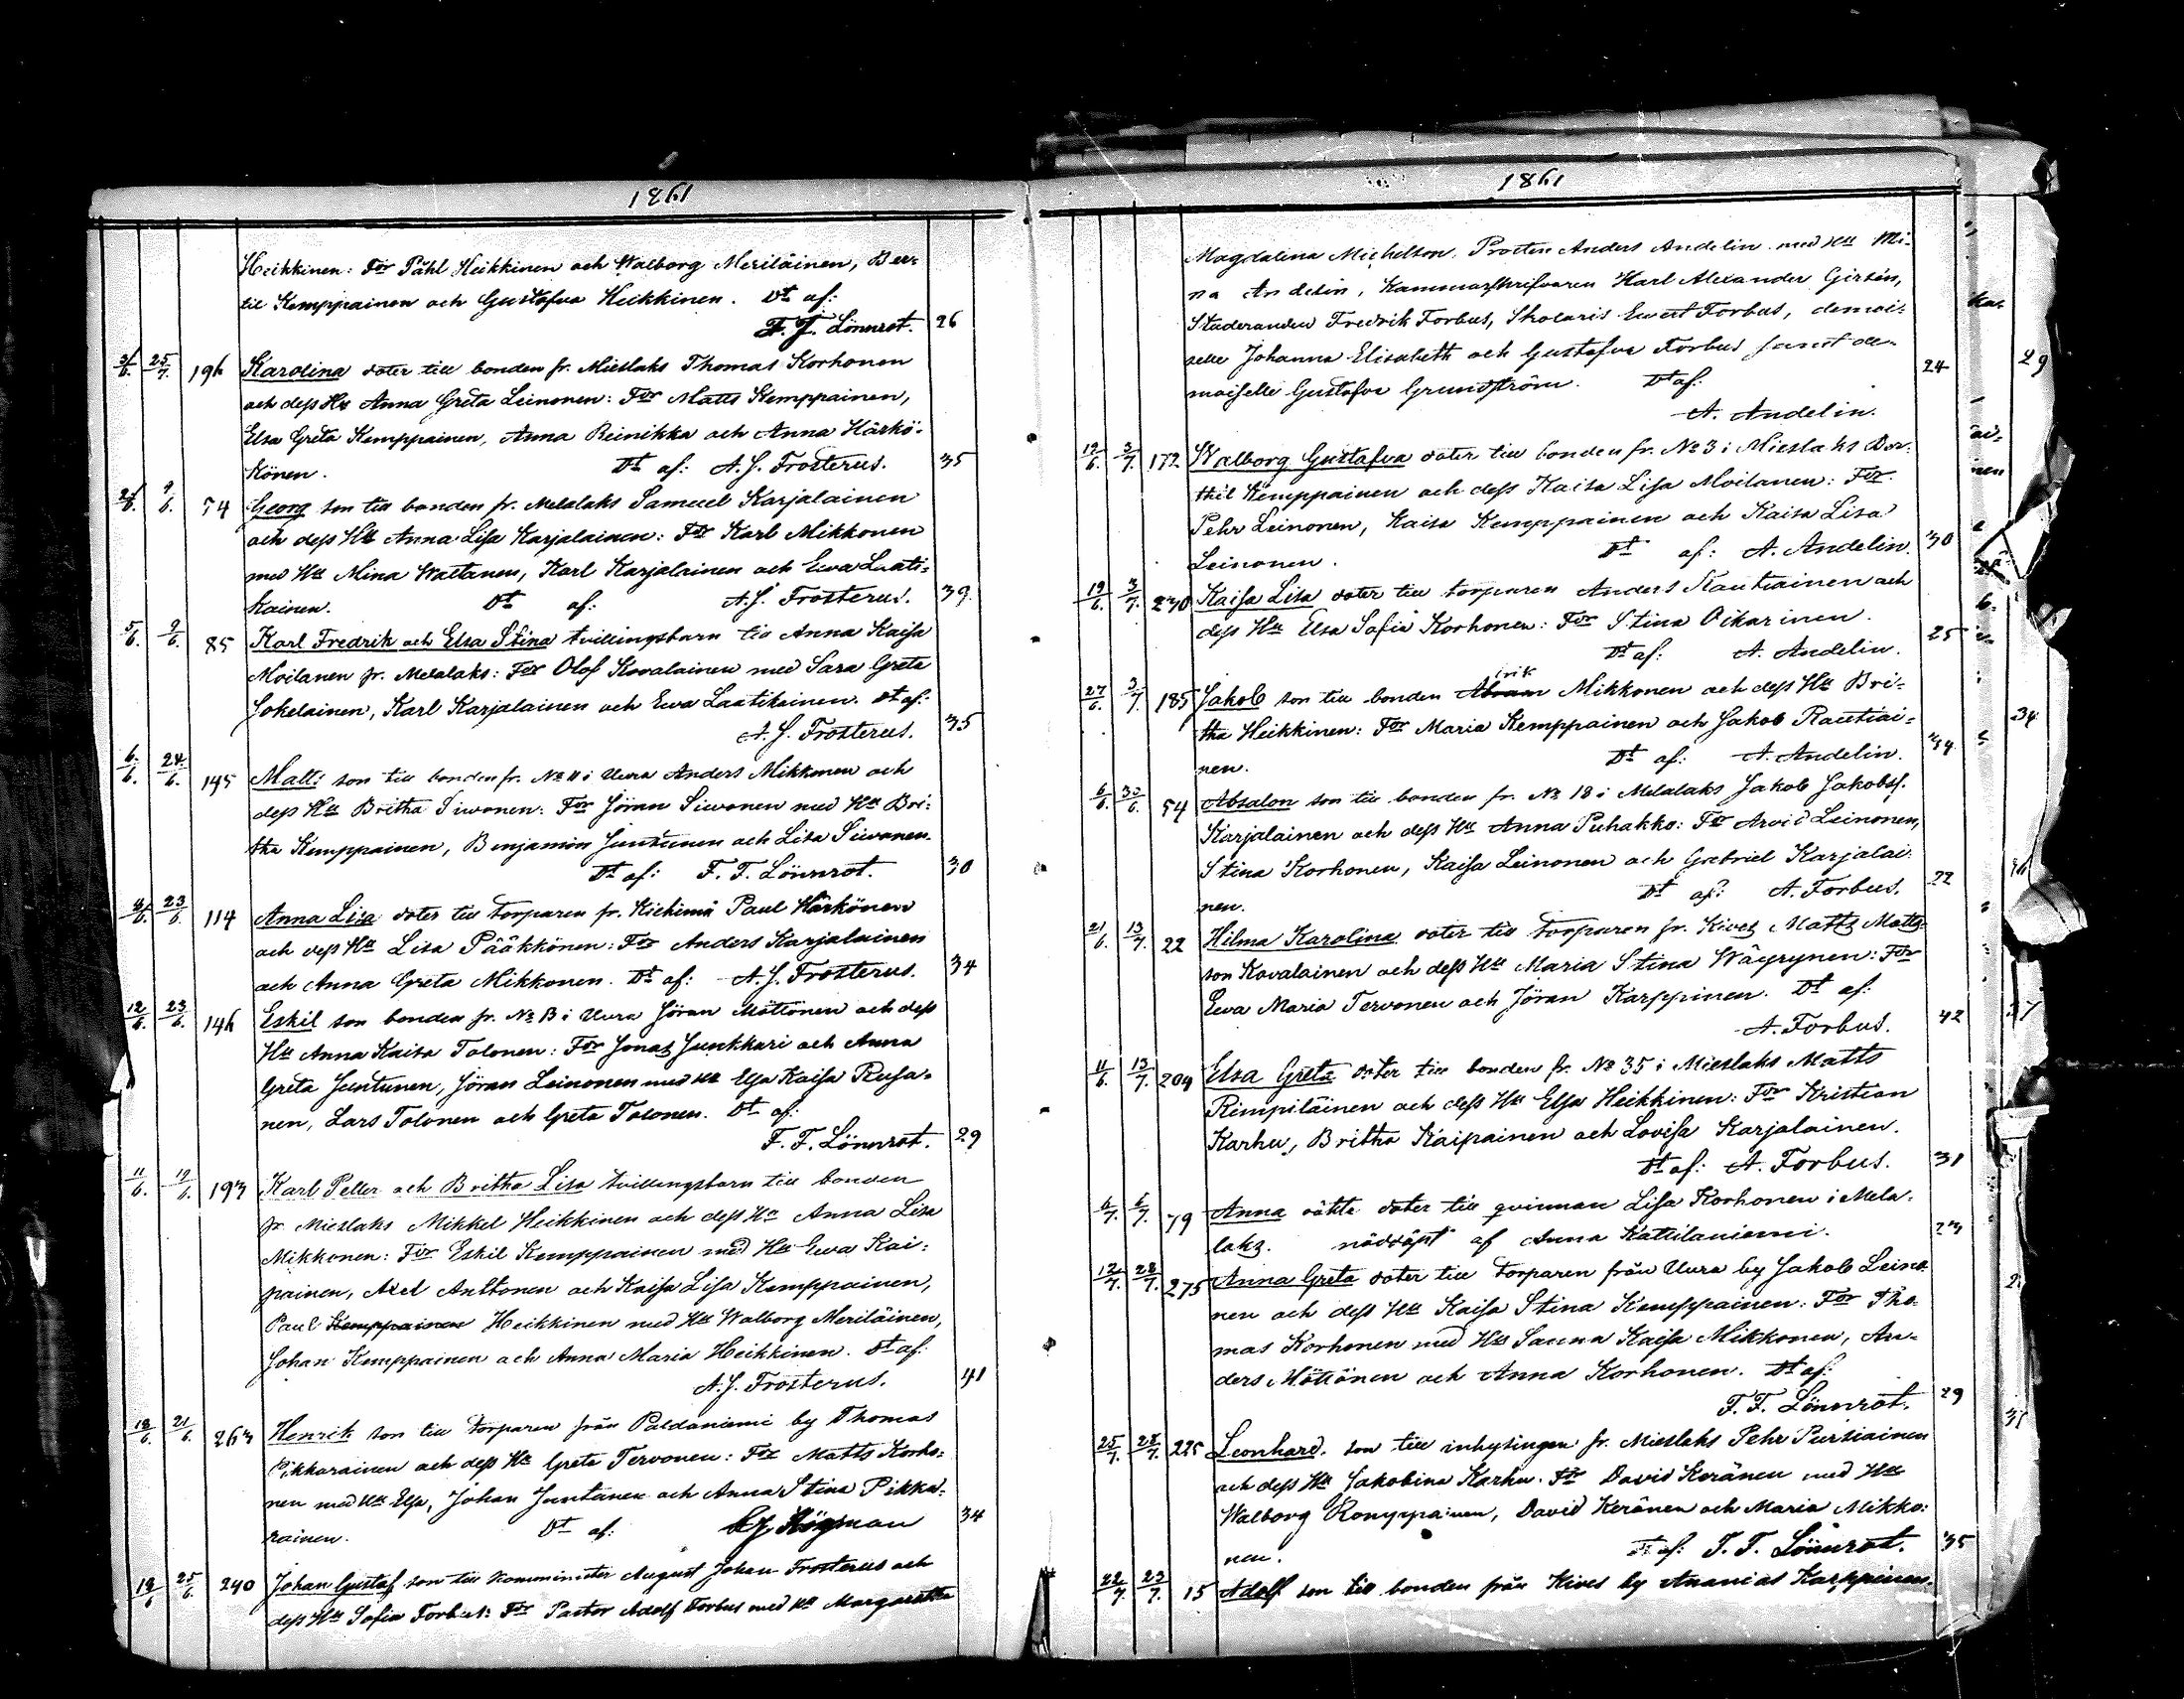 1861
Heikkinen: For Påhl Heikkinen och Walborg Meriläinen, Ber-
til Kemppainen och Gustafva Heikkinen. Dt af:
F. F. Lönnrot. 26
3/6. 25/7. 196 Karolina doter till bonden fr. Mieslaks Thomas Korhonen
och dess Hu Anna Greta Leinonen: For Matts Kemppainen,
Elsa Greta Kemppainen, Anna Reinikka och Anna Härkö-
könen. Dt af: A. J. Frosterus. 35
9/6. 74 Georg son till bonden fr. Melalaks Samuel Karjalainen
och dess Hu Anna Lisa Karjalainen: For Karl Mikkonen
med Hu Mina Waltanen, Karl Karjalainen och Ewa Laati-
kainen. Dt af: A. J. Frosterus. 39.
5/6. 9/6. 85 Karl Fredrik och Elsa Stina tvillingsbarn till Anna Kaisa
Moilanen fr. Melalaks: For Olof Kovalainen med Sara Greta
Jokelainen, Karl Karjalainen och Ewa Laatikainen. Dt af:
A. J. Frosterus. 35
6/6. 24/6. 145 Matts son till bonden fr. No 11 i Uura Anders Mikkonen och
dess Hu Britha Siwonen: For Jöran Siwonen med Hu Bri-
tha Kemppainen, Benjamin Juntunen och Lisa Siwonen.
Dt af: F. F. Lönnrot. 30
9/6. 23/6. 114 Anna Lisa doter till torparen fr. Kiehimä Paul Härkönen
och dess Hu Lisa Pääkkönen: For Anders Karjalainen
och Anna Greta Mikkonen. Dt af: A. J. Frosterus. 34
12/6. 23/6. 146 Eskil son bonden fr. No 13 i Uura Jöran Möttönen och dess
Hu Anna Kaisa Tolonen: For Jonas Junkkari och Anna
Greta Juntunen, Jöran Leinonen med Hu Elsa Kaisa Rusa-
nen, Lars Tolonen och Greta Tolonen. Dt af:
F. F. Lönnrot. 29
11/6. 12/6. 193 Karl Petter och Britha Lisa tvillingsbarn till bonden
fr. Mieslaks Mikkel Heikkinen och dess Hu Anna Lisa
Mikkonen: For Eskil Kemppainen med Hu Ewa Kai-
painen, Axel Anttonen och Kaisa Lisa Kemppainen,
Paul Kemppainen Heikkinen med Hu Walborg Meriläinen,
Johan Kemppainen och Anna Maria Heikkinen. Dt af:
A. J. Frosterus. 41
18/6. 21/6. 263 Henrik son till torparen från Paldaniemi by Thomas
Pikkarainen och dess Hu Greta Tervonen: For Matts Korho-
nen med Hu Elsa, Johan Juntunen och Anna Stina Pikka-
rainen. Dt af: Högman 34
19/6 25/6. 240 Johan Gustaf son till Komminister August Johan Frosterus och
dess Hu Sofia Forbus: For Pastor Adolf Forbus med Hu Margaretha
1861
Magdalina Michelson, Prosten Anders Andelin med Hu Mi-
na Andelin, Kammarskrifvaren Karl Alexander Girsén,
Studeranden Fredrik Forbus, Skolaris Ewert Forbus, demoi-
selle Johanna Elisabeth och Gustafva Forbus samt de-
moiselle Gustafva Grundström. Dt af: 24
A. Andelin.
19/6. 3/7. 172 Walborg Gustafva doter till bonden fr. No 3 i Mieslaks Ber-
thil Kemppainen och dess Kaisa Lisa Moilanen: For
Pehr Leinonen, Kaisa Kemppainen och Kaisa Lisa
Leinonen. Dt af: A. Andelin. 30
19/6. 3/7. 230 Kaisa Lisa doter till torparen Anders Rautiainen och
dess Hu Elsa Sofia Korhonen: For Stina Oikarinen.
Dt af: A. Andelin. 25
27/6. 3/7. 185 Jakob son till bonden Abram Mikkonen och dess Hu Bri-
tha Heikkinen: For Maria Kemppainen och Jakob Rautiai-
nen. Dt af: A. Andelin. 44
6/6. 30/6. 54 Absalon son till bonden fr. No 18 i Melalaks Jakob Jakobss.
Karjalainen och dess Hu Anna Puhakko: For Arvid Leinonen,
Stina Korhonen, Kaisa Leinonen och Gabriel Karjalai-
nen. Dt af: A. Forbus. 22
21/6. 13/7. 22 Hilma Karolina doter till torparen fr. Kives Matts Matts-
son Kovalainen och dess Hu Maria Stina Wäyrynen: For
Ewa Maria Tervonen och Jöran Karppinen. Dt af:
A. Forbus. 42
11/6. 13/7. 204 Elsa Greta doter till bonden fr. No 35 i Mieslaks Matts
Rimpiläinen och dess Hu Elsa Heikkinen: For Kristian
Karhu, Britha Kaipainen och Lovisa Karjalainen.
Dt af: A. Forbus. 31
6/7. 6/7. 79 Anna oäkta doter till qvinnan Lisa Korhonen i Mela-
laks. nöddöpt af Anna Kattilaniemi. 23
12/7. 28/7. 275 Anna Greta doter till torparen från Uura by Jakob Leino-
nen och dess Hu Kaisa Stina Kemppainen: For Tho-
mas Korhonen med Hu Sanna Kaisa Mikkonen, An-
ders Möttönen och Anna Korhonen. Dt af:
F. F. Lönnrot. 29
25/7. 28/7. 225 Leonhard son till inhysingen fr. Mieslaks Pehr Pursiainen
och dess Hu Jakobina Karhu. For David Keränen med Hu
Walborg Komppainen, David Keränen och Maria Mikko-
nen. Dt af: F. F. Lönnrot. 35
22/7. 23/7. 15 Adolf son till bonden från Kives by Ananias Karppinen